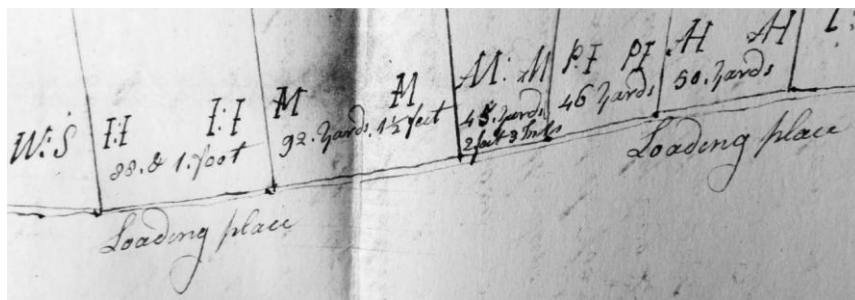 W:S
I:I I:I
88. & 1. foot
M M
92. Yards. 1½ feet
M: M
45. Yards
2 feet 3 Inches
P.I P I
46 Yards
H H
50. Yards
Loading place
Loading place